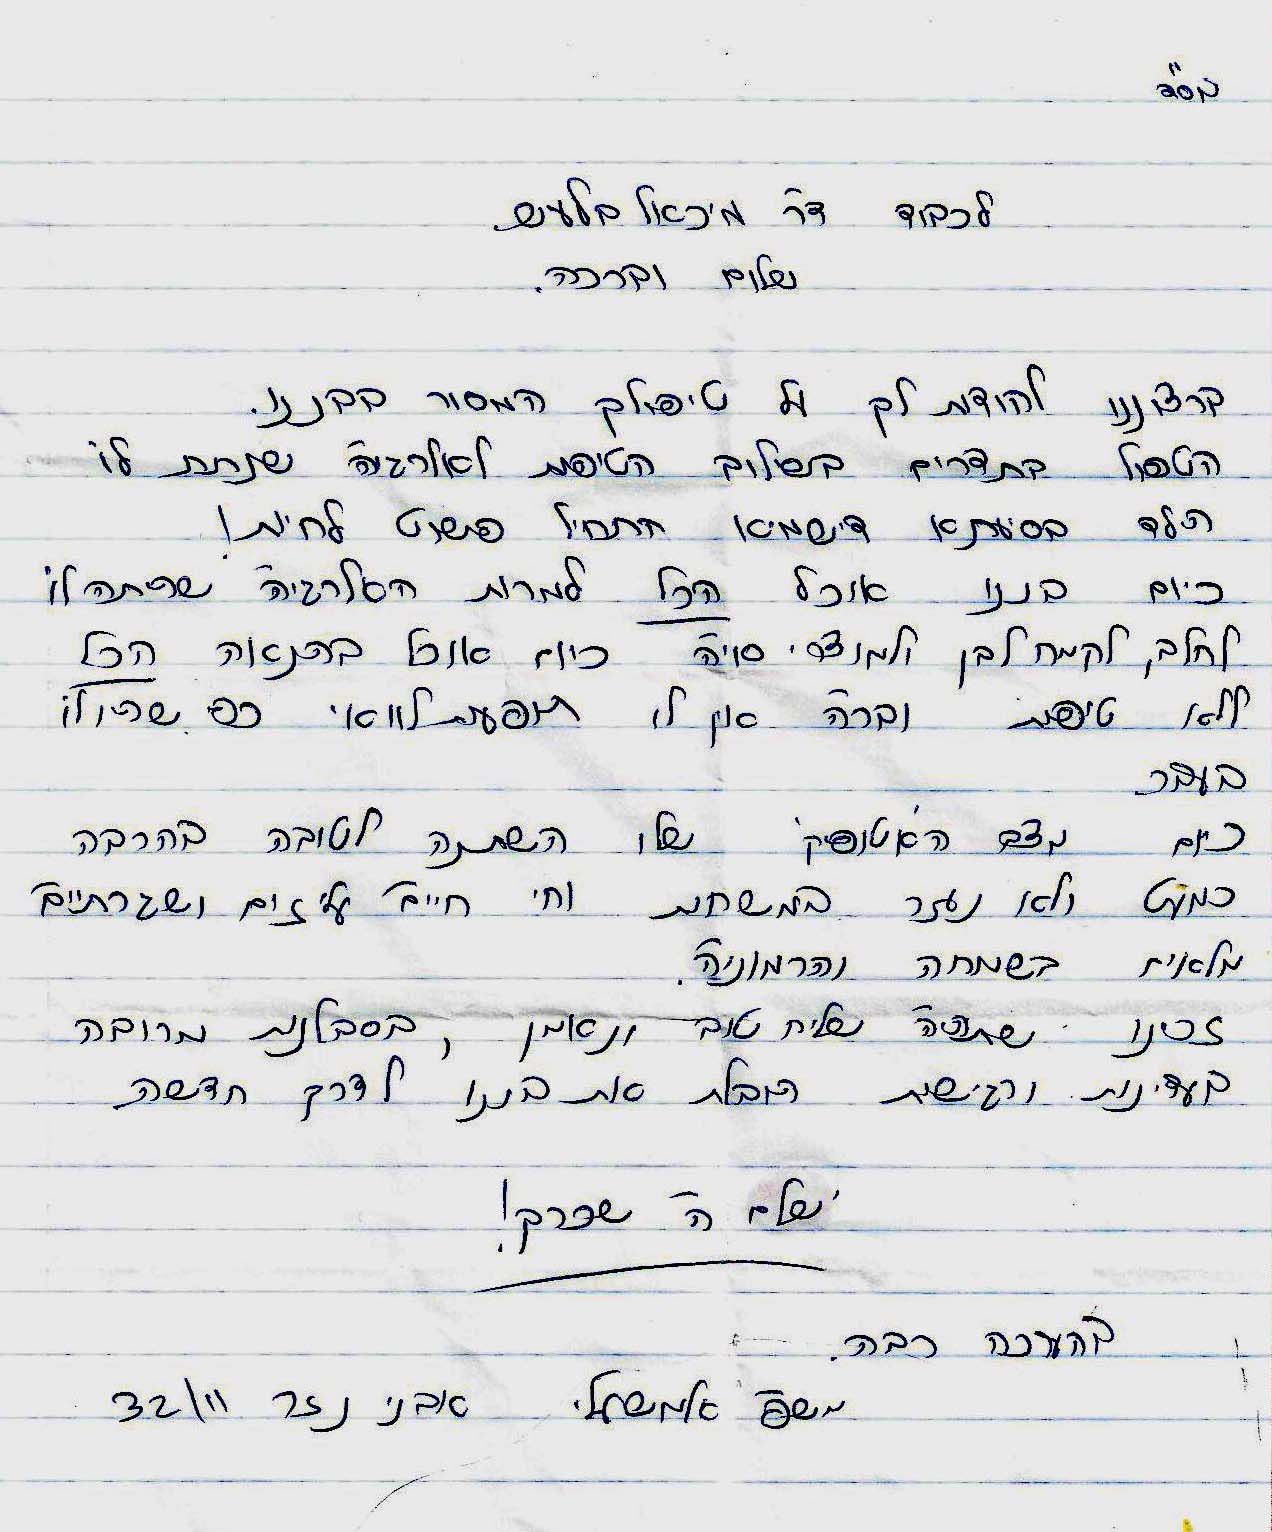 בס"ד
לכבוד דר' מיכאל בלעיש
שלום וברכה.
ברצוננו להודות לך על טיפולך המסור בבננו.
הטפול בתדרים בשילוב הטיפות לאלרגיה שנתת לו
הילד בסיעתא דישמיא התחיל פשוט לחיות!
כיום בננו אוכל הכל למרות האלרגיה שהיתה לו
לחלב, לקמח לבן ולמוצרי סויה כיום אוכל בהנאה הכל
ללא טיפות וב"ה אין לו תופעות לוואי כפי שהיו לו
בעבר
כיום מצב ה"אטופיק" שלו השתנה לטובה בהרבה
כמעט ולא נעזר במשחות וחי חיים עליזים ושגרתיים
מלאים בשמחה והרמוניה.
זכינו שתהיה שליח טוב ונאמן, בסבלנות מרובה
בעדינות ורגישות הובלת את בננו לדרך חדשה
ישלם ה' שכרך!
בהערכה רבה.
משפ' אלמשעלי אבני נזר 32/11